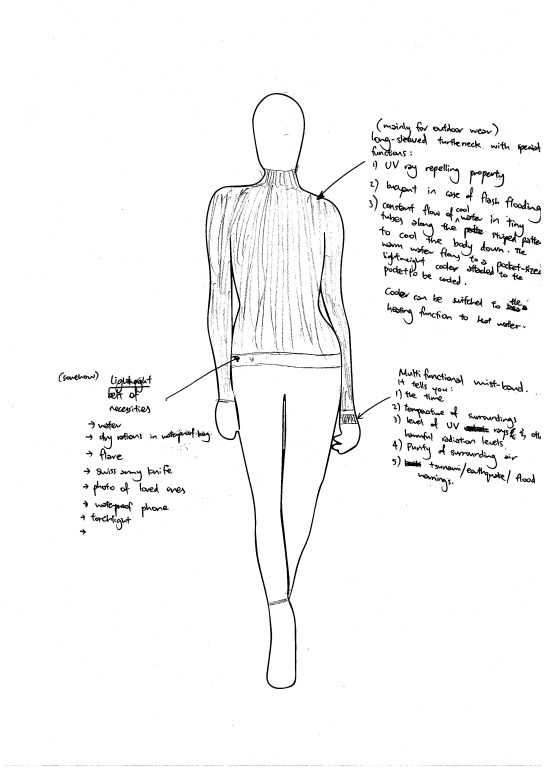 (mainly for outdoor wear)
long-sleeved turtleneck with special
functions:
1) UV ray repelling property
2) buoyant in case of flash flooding
3) constant flow of cool water in tiny
tubes along the striped patte
to cool the body down. The
warm water flows to a pocket-sized
lightweight cooler attached to the
pocket to be cooled.
Cooler can be switched to
heating function to heat water.
(somehow) Lightweight
belt of
necessities
→ water
→ dry rations in waterproof bag
→ flare
→ swiss army knife
→ photo of loved ones
→ waterproof phone
→ torchlight
→
Multifunctional wrist-band.
It tells you:
1) the time
2) temperature of surroundings
3) level of UV rays &
harmful radiation levels
4) Purity of surrounding air
5) tsunami/earthquake/flood
warnings.